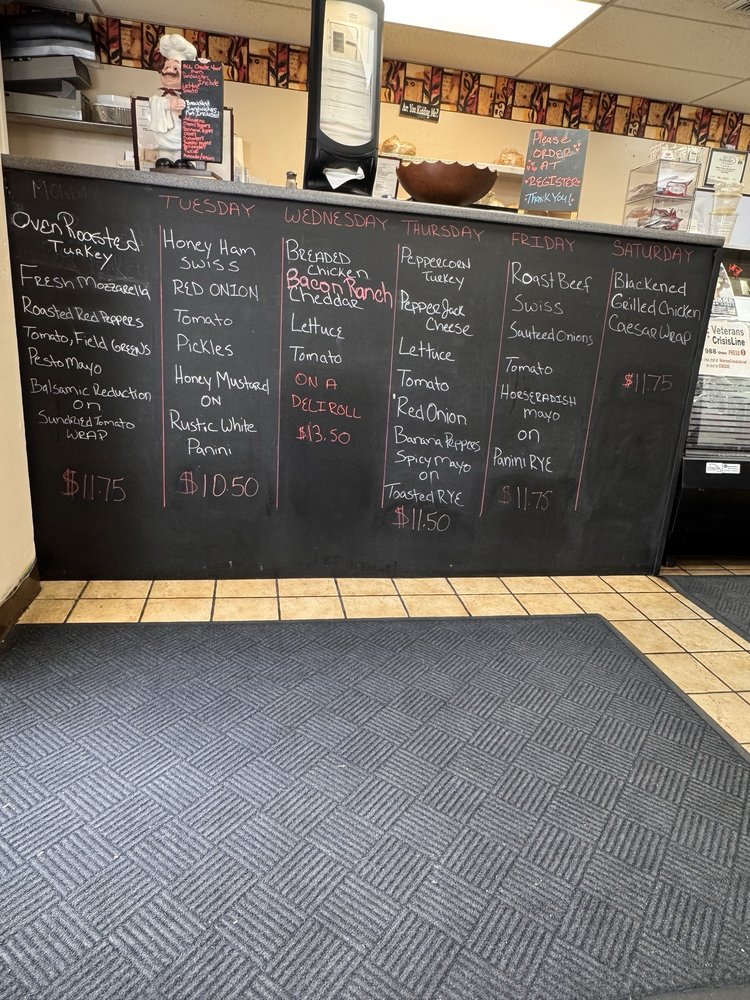 Are You Kidding Me?
Please
ORDER
AT
REGISTER
THANK YOU!
MONDAY
Oven Roasted
Turkey
Fresh Mozzarella
Roasted Red Peppers
Tomato, Field Greens
Pesto Mayo
Balsamic Reduction
on
Sundried Tomato
WRAP
$11.75
TUESDAY
Honey Ham
Swiss
RED ONION
Tomato
Pickles
Honey Mustard
ON
Rustic White
Panini
$10.50
WEDNESDAY
BREADED
Chicken
Bacon Ranch
Cheddar
Lettuce
Tomato
ON A
DELI ROLL
$13.50
THURSDAY
Peppercorn
Turkey
Pepper Jack
Cheese
Lettuce
Tomato
Red Onion
Banana Peppers
Spicy mayo
on
Toasted RYE
$11.50
FRIDAY
Roast Beef
Swiss
Sauteed Onions
Tomato
HORSERADISH
mayo
on
Panini RYE
$11.75
SATURDAY
Blackened
Grilled Chicken
Caesar Wrap
$11.75
Veterans
CrisisLine
988 then PRESS 1